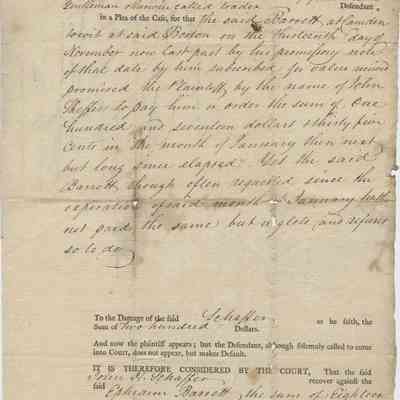 Gentleman otherwise called trader Defendant
in a Plea of the Case, for that the said Barrett, at Camden
to wit at said Boston on the thirteenth day of
November now last past by his promissory note
of that date by him subscribed for value received
promised the Plaintiff by the name of John
Sheffer to pay him or order the sum of One
hundred and seventeen dollars & thirty five
cents in the month of January then next
but long since elapsed. Yet the said
Barrett, though often requested since the
expiration of said month of January hath
not paid the same but neglects and refuses
so to do
To the Damage of the said Schaffer as he saith, the
Sum of two hundred Dollars.
And now the plaintiff appears; but the Defendant, although solemnly called to come
into Court, does not appear, but makes Default.
IT IS THEREFORE CONSIDERED BY THE COURT, That the said
John H. Schaffer recover against the
said Ephraim Barrett the sum of Eighteen